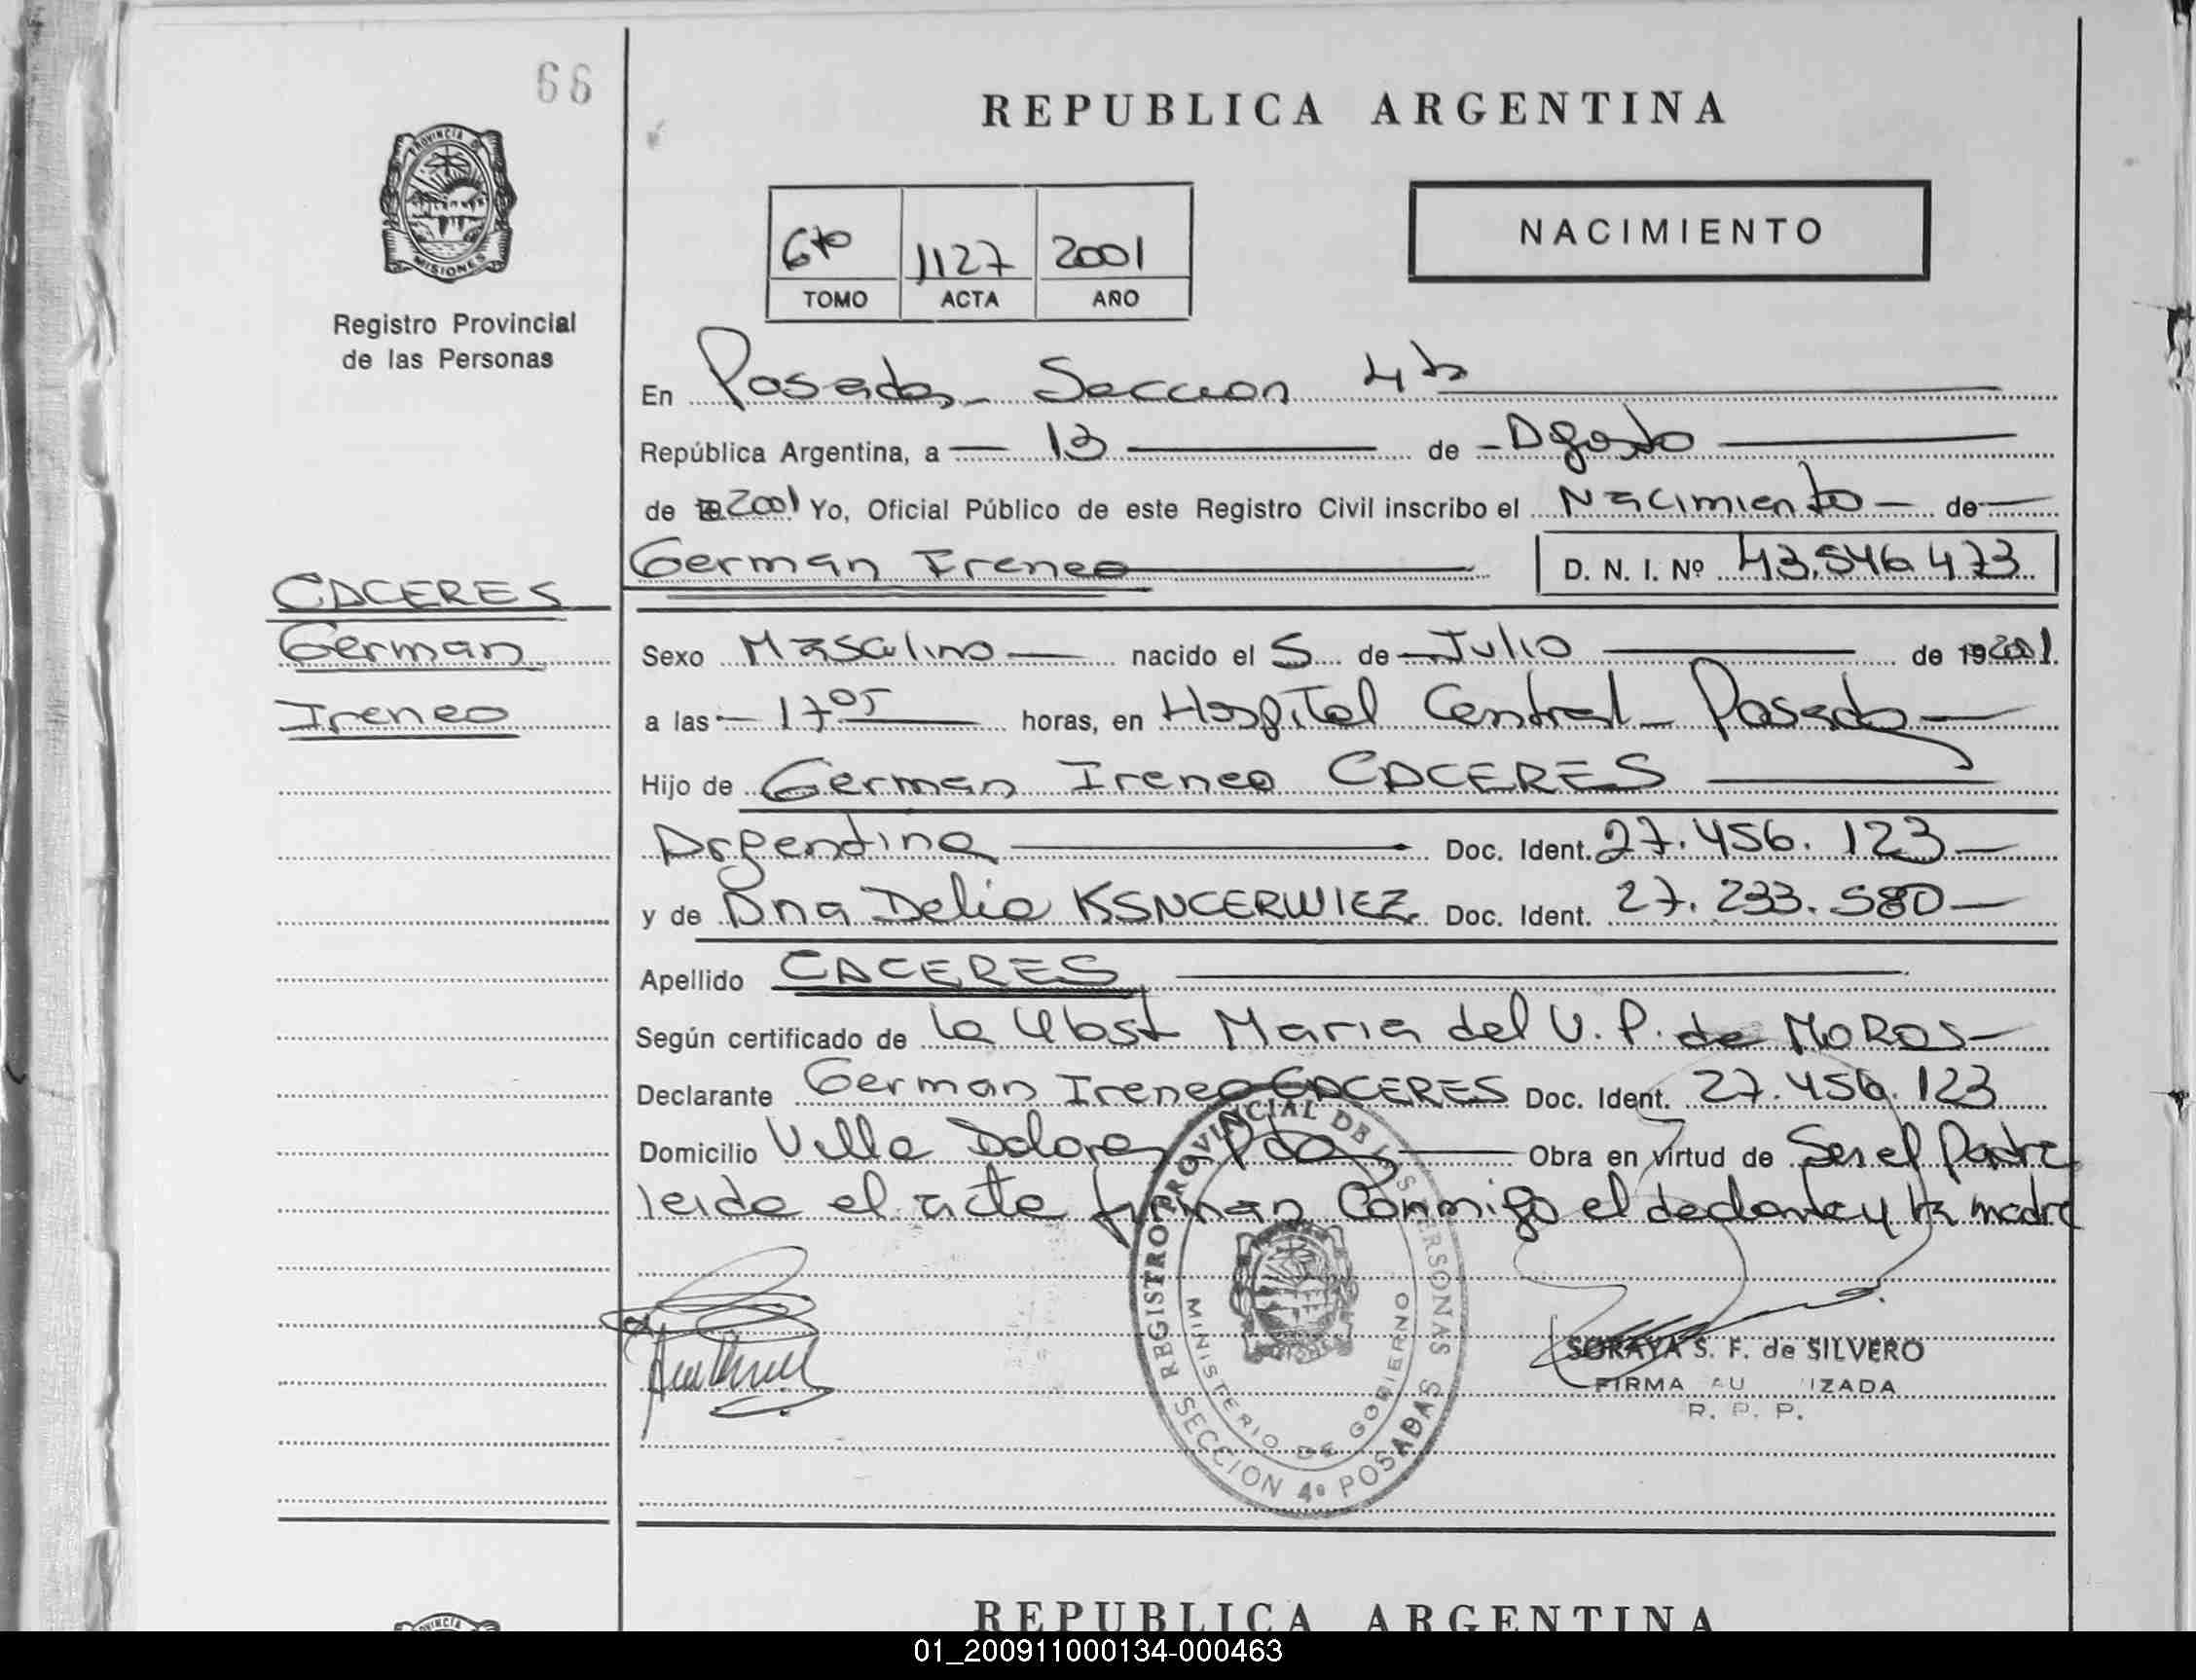 66
REPUBLICA ARGENTINA
PROVINCIA DE
MISIONES
Registro Provincial
de las Personas
6to 1127 2001
TOMO ACTA AÑO
NACIMIENTO
En Posadas Seccion 4ta
República Argentina, a 13 de Agosto
de 2001 Yo, Oficial Público de este Registro Civil inscribo el Nacimiento de
German Ireneo D. N. I. Nº 43.546.473
CACERES
German
Ireneo
Sexo Masculino nacido el 5 de Julio de 192001
a las 17 05 horas, en Hospital Central Posadas
Hijo de German Ireneo CACERES
Argentina Doc. Ident. 27.456.123
y de Ana Delia KSNCERWIEZ Doc. Ident. 27.233.580
Apellido CACERES
Según certificado de la Obst Maria del V. P. de MOROS
Declarante German Ireneo CACERES Doc. Ident. 27.456.123
Domicilio Villa Dolores Pdas Obra en virtud de Ser el Padre
leida el acta firman conmigo el declarante y la madre
REGISTRO PROVINCIAL DE LAS PERSONAS
MINISTERIO DE GOBIERNO
SECCION 4º POSADAS
SORAYA S. F. de SILVERO
FIRMA AU IZADA
R. P. P.
REPUBLICA ARGENTINA
01_200911000134-000463